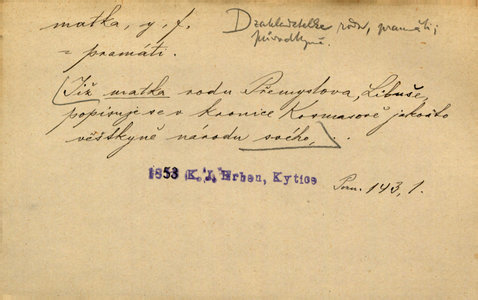 matka, y, f.
D zakladatelka rodu, pramáti,
původkyně.
= pramáti.
Již matka rodu Přemyslova, Libuše,
popisuje se v kronice Kosmasově jakožto
věštkyně národu svého, . .
1853 K. J. Erben, Kytice
Pozn. 143, 1.